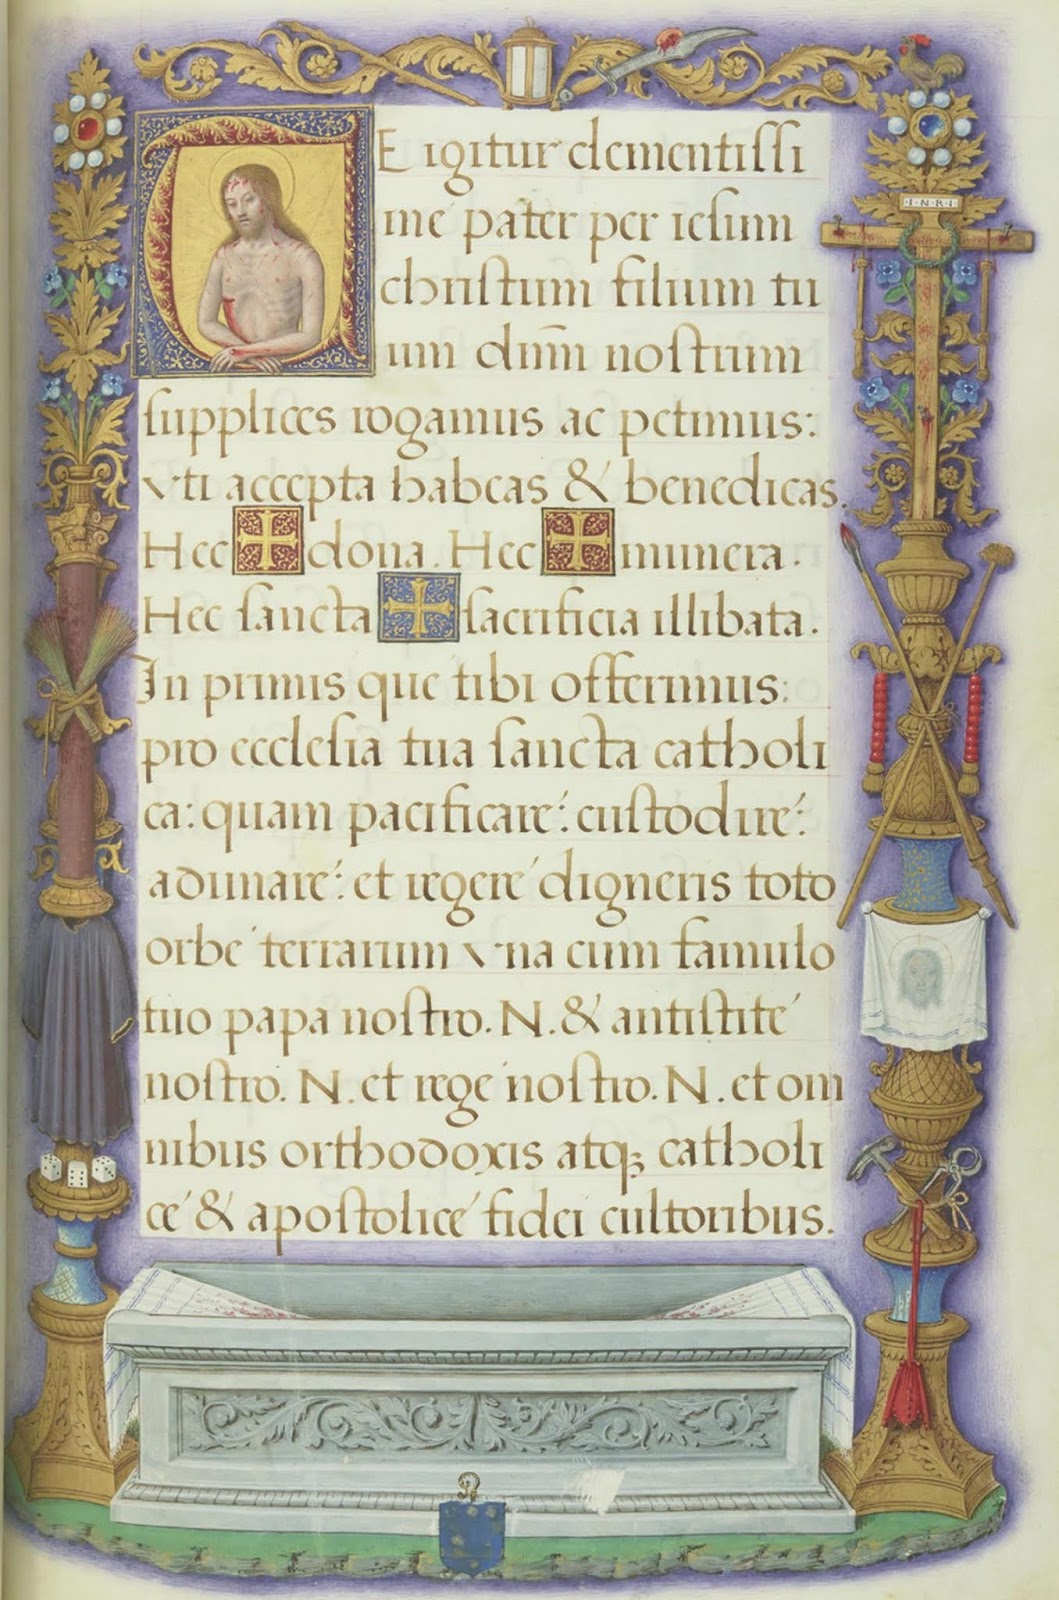 TE igitur clementissi
me pater per iesum
christum filium tu
um dñm nostrum
supplices rogamus ac petimus:
vti accepta habeas & benedicas.
Hec ✠ dona. Hec ✠ munera.
Hec sancta ✠ sacrificia illibata.
In primis que tibi offerimus:
pro ecclesia tua sancta catholi
ca: quam pacificare: custodire:
adunare: et regere digneris toto
orbe terrarum vna cum famulo
tuo papa nostro. N. & antistite
nostro. N. et rege nostro. N. et om
nibus orthodoxis atq; catholi
ce & apostolice fidei cultoribus.
·I·N·R·I·